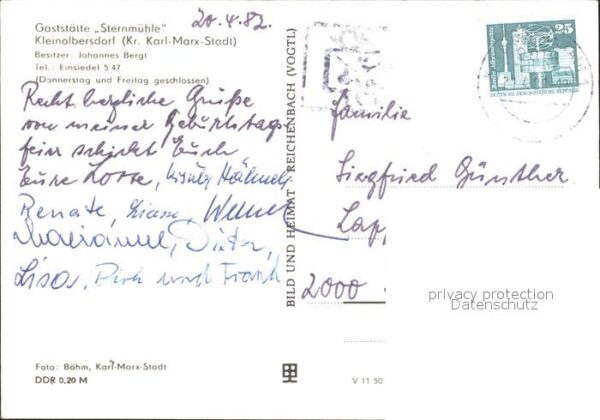 20.4.82.
Gaststätte „Sternmühle"
Kleinolbersdorf (Kr. Karl-Marx-Stadt)
Besitzer: Johannes Bergt
Tel.: Einsiedel 5 47
(Donnerstag und Freitag geschlossen)
Recht herzliche Grüße
von meiner Geburtstags
feier schickt Euch
Eure Lotte,
Renate,
Marianne, Dieter,
Lisa, Dirk und Frank
Foto: Böhm, Karl-Marx-Stadt
DDR 0,20 M
BILD UND HEIMAT REICHENBACH (VOGTL)
V 11 50
25
DEUTSCHE DEMOKRATISCHE REPUBLIK
Familie
Siegfried Günther
2000
privacy protection
Datenschutz